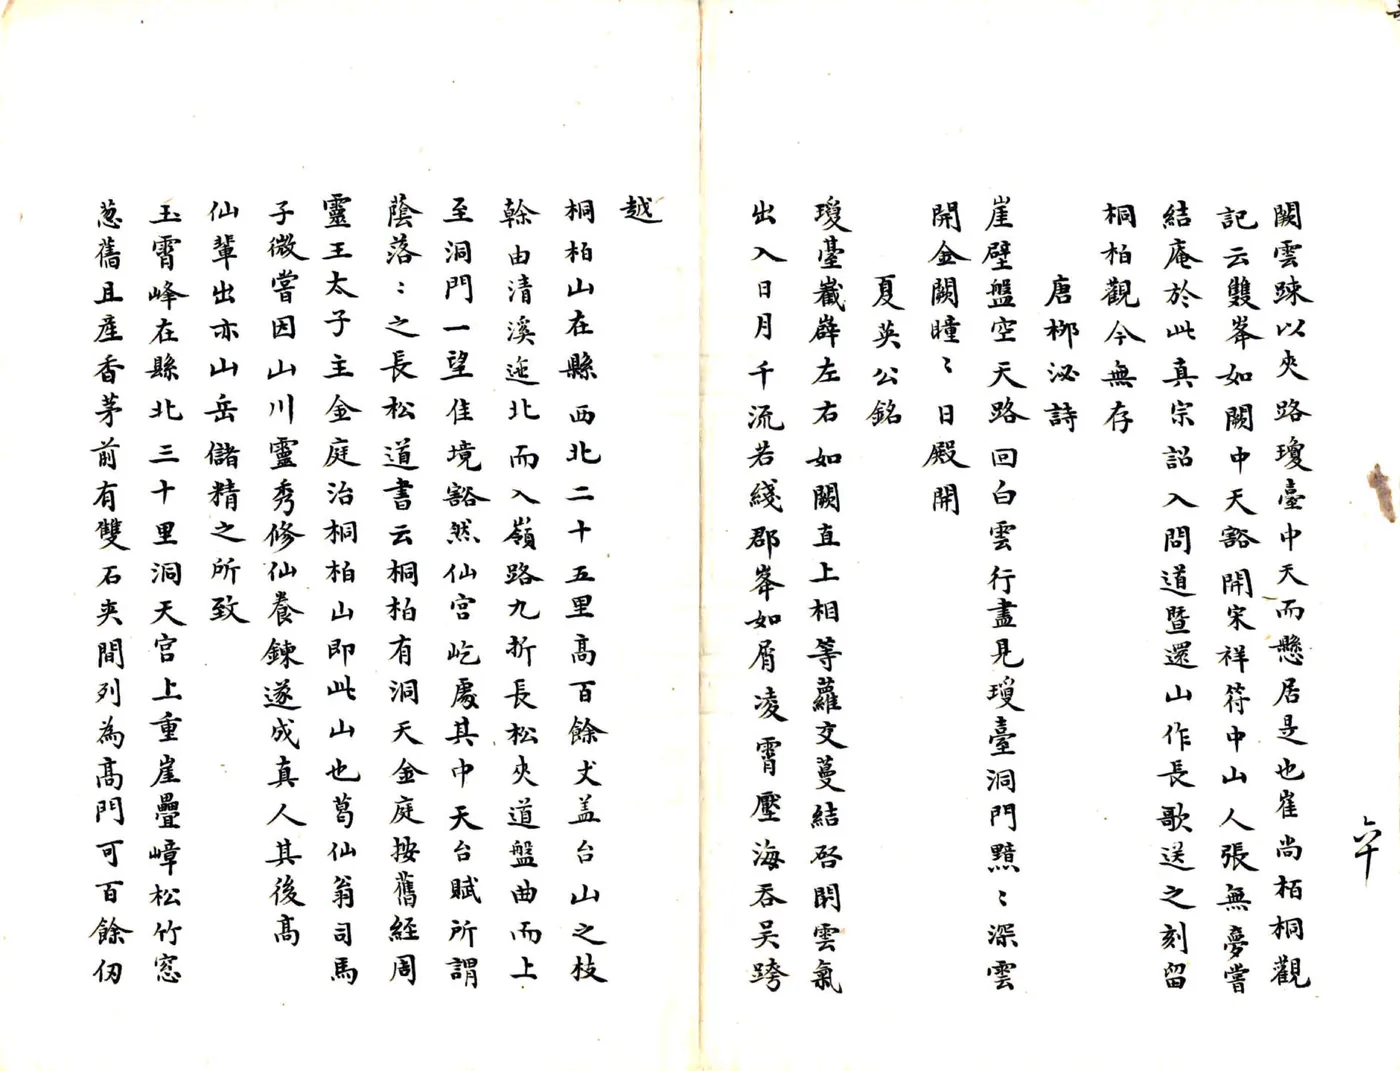 闕雲踈以夾路瓊臺中天而懸居是也崔尚栢桐觀
記云雙峯如闕中天豁開宋祥符中山人張無夢嘗
結庵於此真宗詔入問道暨還山作長歌送之刻留
桐柏觀今無存
唐栁泌詩
崖壁盤空天路回白雲行盡見瓊臺洞門黯〻深雲
開金闕瞳〻日殿開
夏英公銘
瓊臺巀嶭左右如闕直上相等蘿交蔓結啓閉雲氣
出入日月千流若綫郡峯如屑凌霄壓海吞吴跨
越
桐柏山在縣西北二十五里髙百餘丈盖台山之枝
榦由清溪迤北而入嶺路九折長松夾道盤曲而上
至洞門一望佳境豁然仙宫屹處其中天台賦所謂
蔭落〻之長松道書云桐柏有洞天金庭按舊經周
靈王太子主金庭治桐柏山即此山也葛仙翁司馬
子微嘗因山川靈秀修仙養鍊遂成真人其後髙
仙輩出亦山岳儲精之所致
玉霄峰在縣北三十里洞天宫上重崖疊嶂松竹窓
葱舊且産香茅前有雙石夾間列為髙門可百餘仞
六十